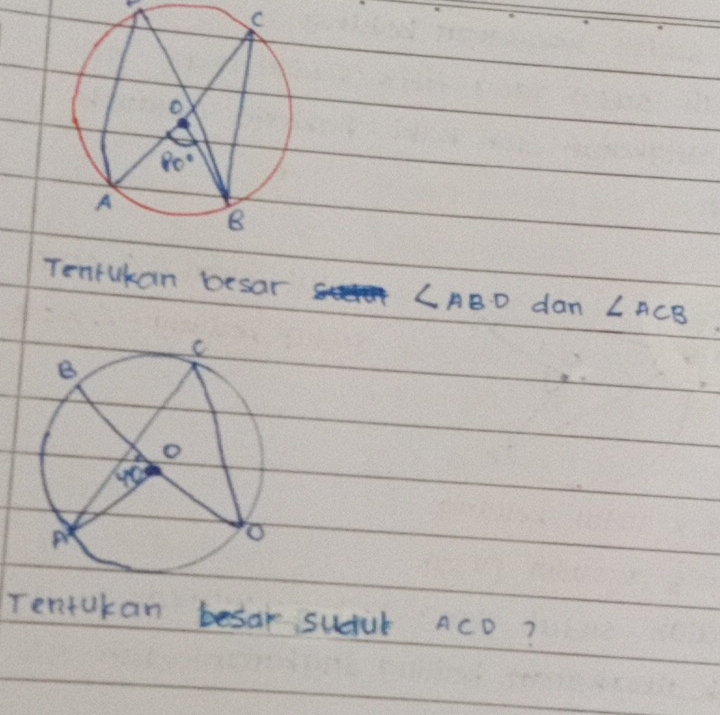 C
O
80°
A
B
Tentukan besar ∠ABD dan ∠ACB
C
B
O
40
A
D
Tentukan besar sudut ACD ?